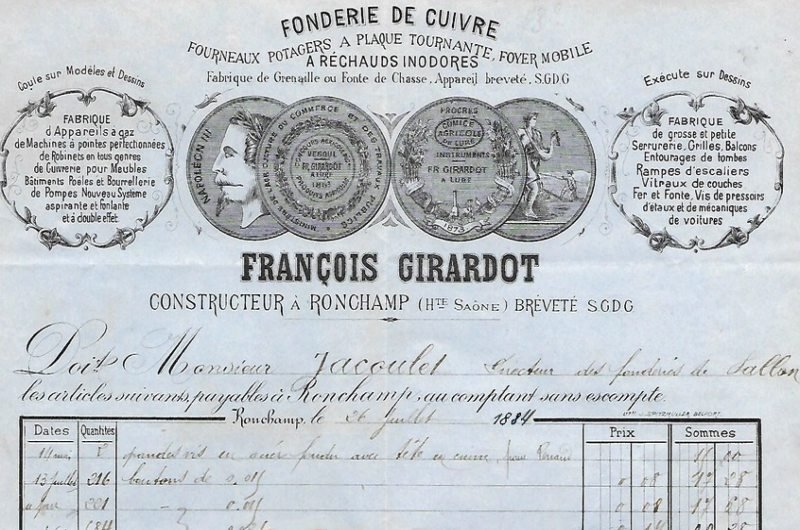 FONDERIE DE CUIVRE
FOURNEAUX POTAGERS A PLAQUE TOURNANTE, FOYER MOBILE
A RÉCHAUDS INODORES
Fabrique de Grenaille ou Fonte de Chasse, Appareil breveté, S.G.D.G
Coule sur Modèles et Dessins
FABRIQUE
d'Appareils à gaz
de Machines à pointes perfectionnées
de Robinets en tous genres
de Cuivrerie pour Meubles
Bâtiments Poêles et Bourrellerie
de Pompes Nouveau Système
aspirante et foulante
et à double effet
NAPOLEON III
MINISTERE DE L'AGRICULTURE DU COMMERCE ET DES TRAVAUX PUBLICS
CONCOURS AGRICOLE
VESOUL
FR. GIRARDOT
A LURE
PROGRES
COMICE
AGRICOLE
DE LURE
INSTRUMENTS
FR GIRARDOT
A LURE
1873
Exécute sur Dessins
FABRIQUE
de grosse et petite
Serrurerie, Grilles, Balcons
Entourages de tombes
Rampes d'escaliers
Vitraux de couches
Fer et Fonte, Vis de pressoirs
d'étaux et de mécaniques
de voitures
FRANÇOIS GIRARDOT
CONSTRUCTEUR À RONCHAMP (HTE SAÔNE) BRÉVETÉ S.G.D.G
Doit Monsieur Jacoulet Directeur des fonderies de Vallon
les articles suivants, payables à Ronchamp, au comptant sans escompte.
Ronchamp, le 26 Juillet 1884
Dates Quantités Prix Sommes
14 mai 2 grandes vis en acier fondu avec tête en cuivre pour Renaud
13 Juillet 216 boutons de 0.015 0 08 17 28
221 0.015 0 08 17 68